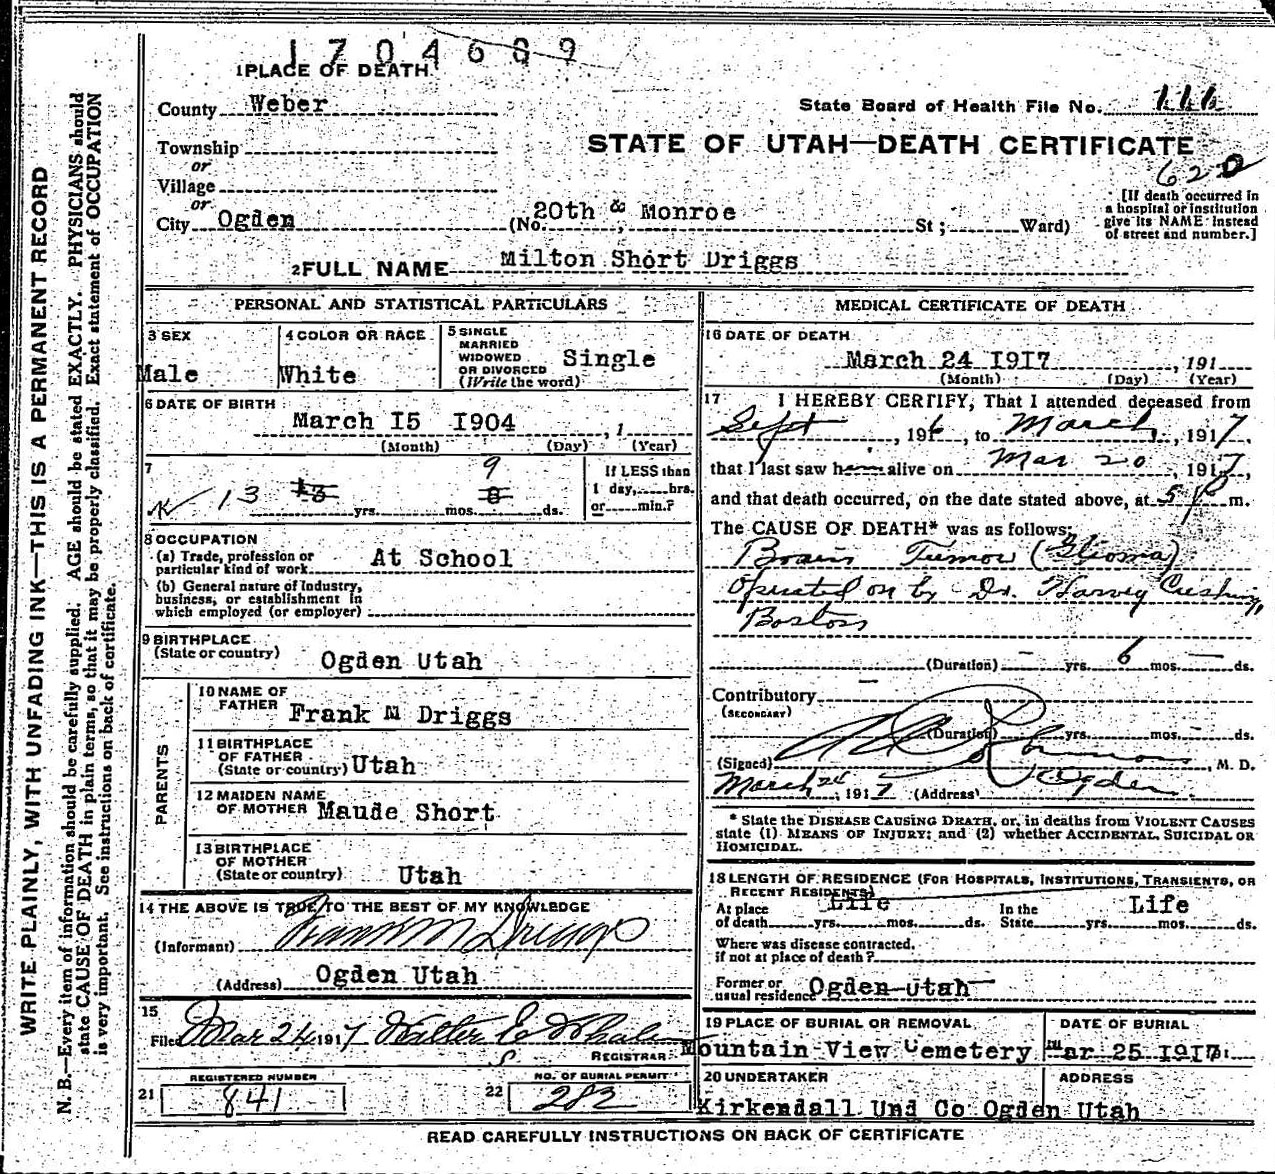 1704689
1 PLACE OF DEATH
County Weber
State Board of Health File No. 111
Township
or
Village
or
City Ogden
STATE OF UTAH—DEATH CERTIFICATE
620
(No. 20th & Monroe St; Ward)
[If death occurred in
a hospital or institution
give its NAME instead
of street and number.]
2 FULL NAME Milton Short Driggs
PERSONAL AND STATISTICAL PARTICULARS
3 SEX
Male
4 COLOR OR RACE
White
5 SINGLE
MARRIED
WIDOWED
OR DIVORCED
(Write the word)
Single
6 DATE OF BIRTH
March 15 1904, 1
(Month) (Day) (Year)
7
13 13 yrs. mos. 8 9 ds.
If LESS than
1 day, hrs.
or min.?
8 OCCUPATION
(a) Trade, profession or
particular kind of work At School
(b) General nature of Industry,
business, or establishment in
which employed (or employer)
9 BIRTHPLACE
(State or country) Ogden Utah
PARENTS
10 NAME OF
FATHER Frank M Driggs
11 BIRTHPLACE
OF FATHER
(State or country) Utah
12 MAIDEN NAME
OF MOTHER Maude Short
13 BIRTHPLACE
OF MOTHER
(State or country) Utah
14 THE ABOVE IS TRUE TO THE BEST OF MY KNOWLEDGE
(Informant) Frank M Driggs
(Address) Ogden Utah
15
Filed Mar 24 1917 Walter E Whalen
REGISTRAR
REGISTERED NUMBER
21 841
NO. OF BURIAL PERMIT
22 282
MEDICAL CERTIFICATE OF DEATH
16 DATE OF DEATH
March 24 1917, 191
(Month) (Day) (Year)
17 I HEREBY CERTIFY, That I attended deceased from
Sept, 1916, to March, 1917,
that I last saw him alive on Mar 20, 1917,
and that death occurred, on the date stated above, at 5 P m.
The CAUSE OF DEATH* was as follows:
Brain Tumor (Glioma)
Operated on by Dr. Harvey Cushing,
Boston
(Duration) — yrs. 6 mos. — ds.
Contributory —
(SECONDARY)
(Duration) yrs. mos. — ds.
(Signed) , M. D.
March 24, 1917 (Address) Ogden.
* State the DISEASE CAUSING DEATH, or, in deaths from VIOLENT CAUSES
state (1) MEANS OF INJURY; and (2) whether ACCIDENTAL, SUICIDAL OR
HOMICIDAL.
18 LENGTH OF RESIDENCE (FOR HOSPITALS, INSTITUTIONS, TRANSIENTS, OR
RECENT RESIDENTS)
At place
of death Life yrs. mos. ds.
In the
State Life yrs. mos. ds.
Where was disease contracted,
if not at place of death?
Former or
usual residence Ogden Utah
19 PLACE OF BURIAL OR REMOVAL
Mountain View Cemetery
DATE OF BURIAL
Mar 25 1917
20 UNDERTAKER
ADDRESS
Kirkendall Und Co Ogden Utah
READ CAREFULLY INSTRUCTIONS ON BACK OF CERTIFICATE
WRITE PLAINLY, WITH UNFADING INK—THIS IS A PERMANENT RECORD
N. B.—Every item of information should be carefully supplied. AGE should be stated EXACTLY. PHYSICIANS should
state CAUSE OF DEATH in plain terms, so that it may be properly classified. Exact statement of OCCUPATION
is very important. See instructions on back of certificate.